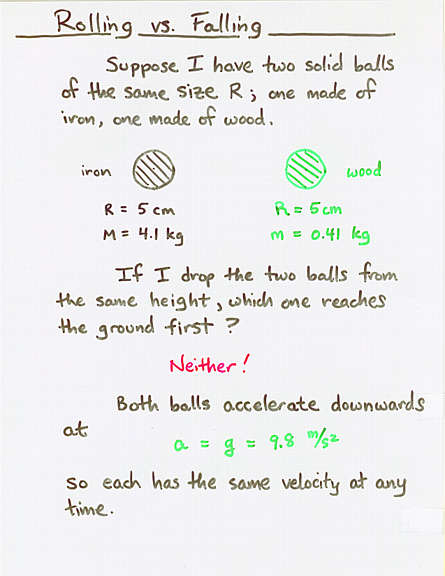 Rolling vs. Falling
Suppose I have two solid balls
of the same size R; one made of
iron, one made of wood.
iron wood
R = 5 cm R = 5 cm
M = 4.1 kg m = 0.41 kg
If I drop the two balls from
the same height, which one reaches
the ground first?
Neither!
Both balls accelerate downwards
at
a = g = 9.8 m/s²
so each has the same velocity at any
time.